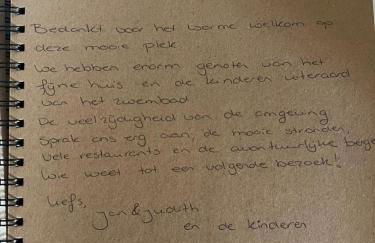 Bedankt voor het warme welkom op
deze mooie plek
We hebben enorm genoten van het
fijne huis en de kinderen uiteraard
van het zwembad
De veelzijdigheid van de omgeving
Sprak ons erg aan, de mooie stranden,
vele restaurants en de avontuurlijke berge
Wie weet tot een volgende bezoek!
Liefs,
Jan & Judith
en de kinderen